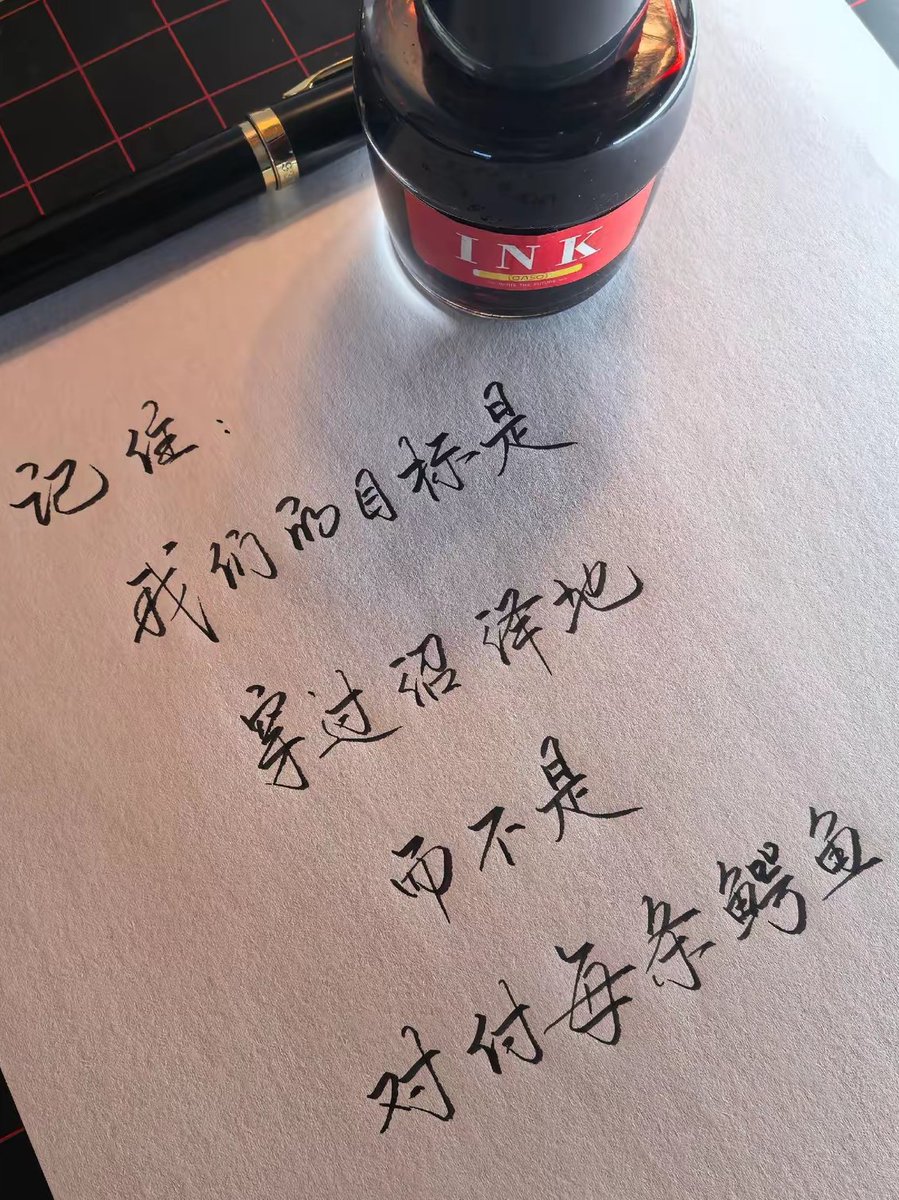 INK
记住：
我们的目标是
穿过沼泽地
而不是
对付每条鳄鱼